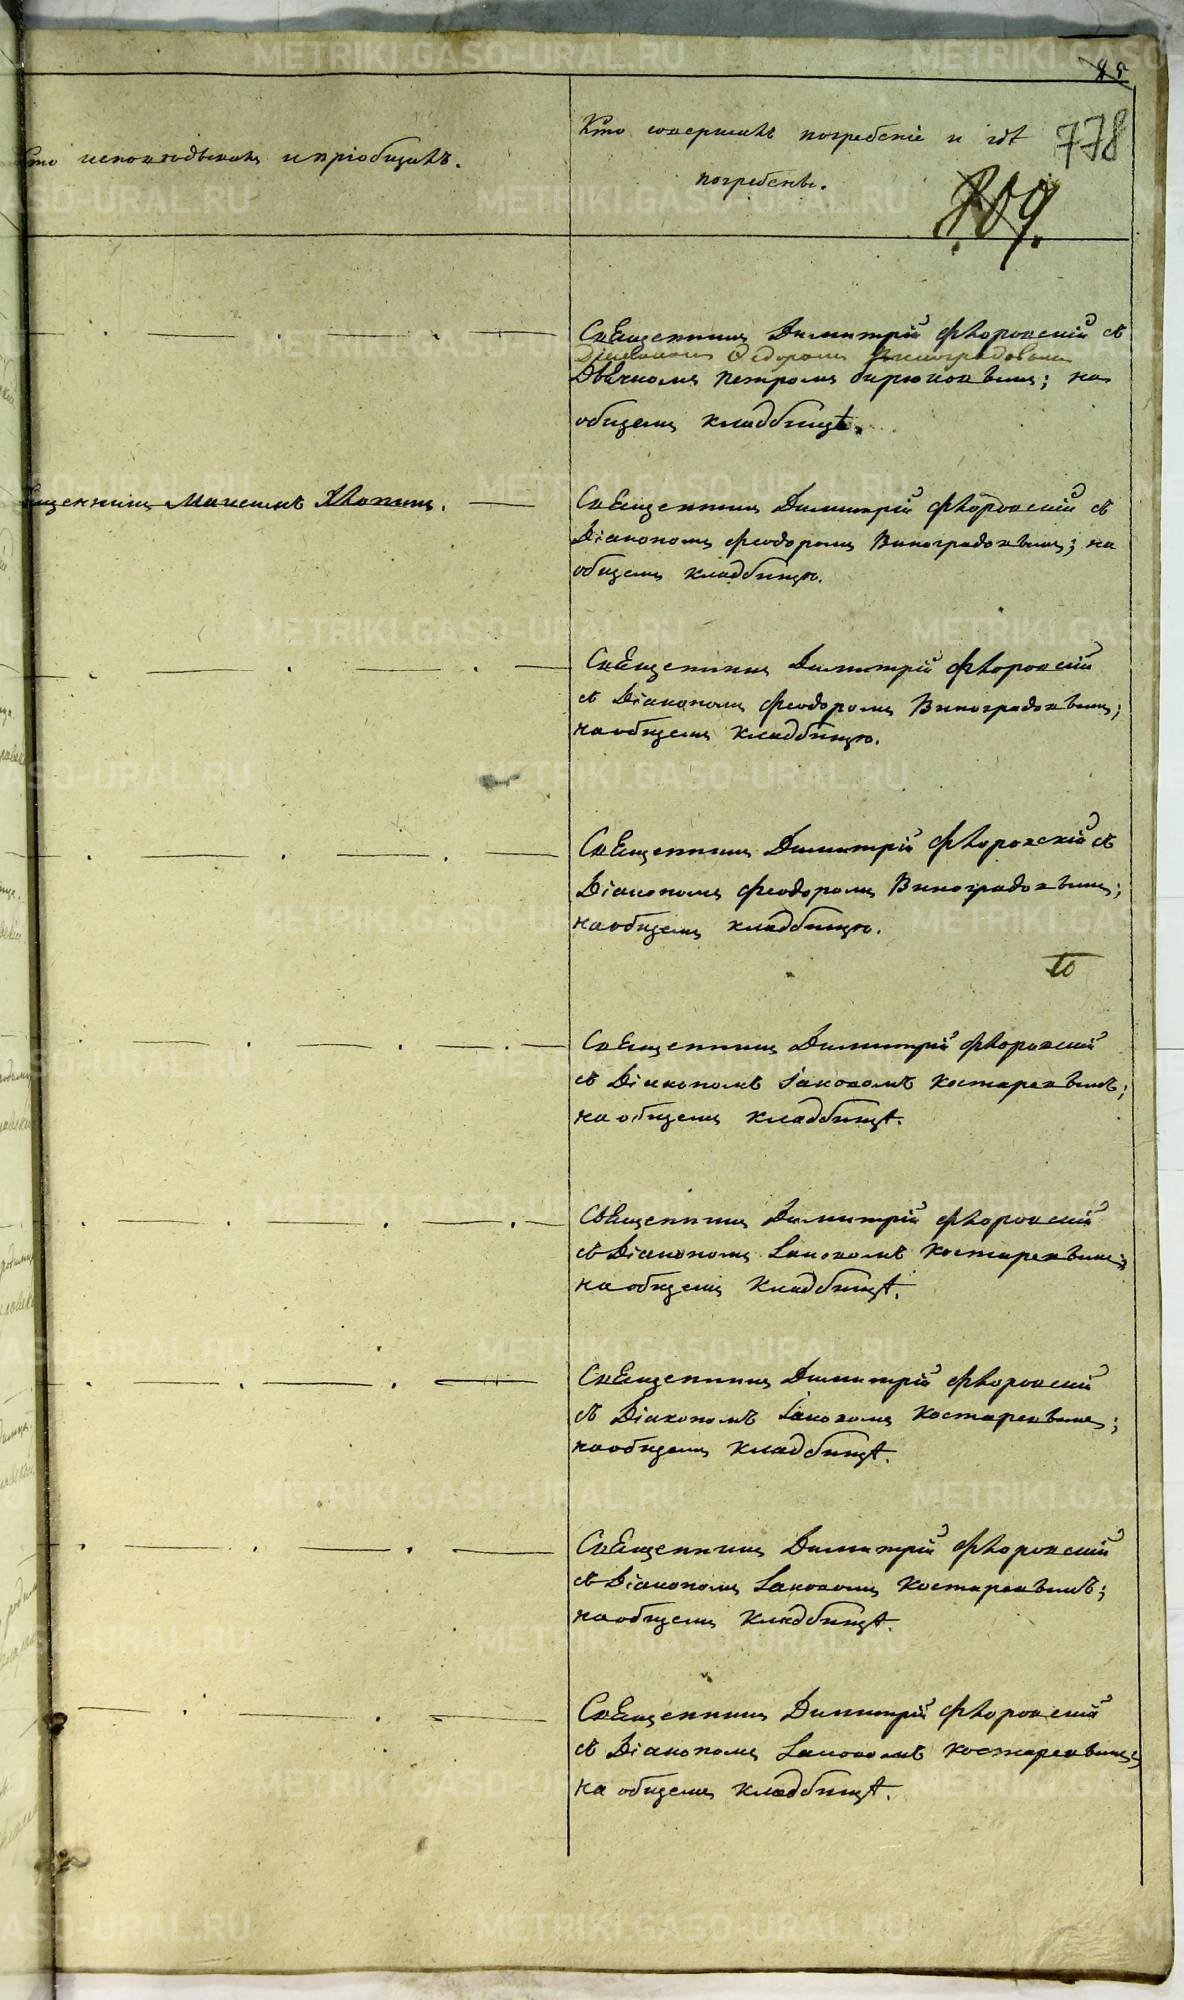 85
Кто исповѣдывалъ и пріобщалъ.
Кто совершалъ погребеніе и гдѣ
погребенъ.
778
809.
Священникъ Димитрій Флоровскій съ
Діакономъ Ѳедоромъ Виноградовымъ
Дьячкомъ Петромъ Бирюковымъ; на
общемъ кладбищѣ.
Священникъ Максимъ
Священникъ Димитрій Флоровскій съ
Діакономъ Феодоромъ Виноградовымъ; на
общемъ кладбищѣ.
Священникъ Димитрій Флоровскій
съ Діакономъ Феодоромъ Виноградовымъ;
на общемъ кладбищѣ.
Священникъ Димитрій Флоровскій съ
Діакономъ Феодоромъ Виноградовымъ;
на общемъ кладбищѣ.
Священникъ Димитрій Флоровскій
съ Діакономъ Іаковомъ Костаревымъ;
на общемъ кладбищѣ.
Священникъ Димитрій Флоровскій
съ Діакономъ Іаковомъ Костаревымъ;
на общемъ кладбищѣ.
Священникъ Димитрій Флоровскій
съ Діакономъ Іаковомъ Костаревымъ;
на общемъ кладбищѣ.
Священникъ Димитрій Флоровскій
съ Діакономъ Іаковомъ Костаревымъ;
на общемъ кладбищѣ.
Священникъ Димитрій Флоровскій
съ Діакономъ Іаковомъ Костаревымъ;
на общемъ кладбищѣ.
METRIKI.GASO-URAL.RU